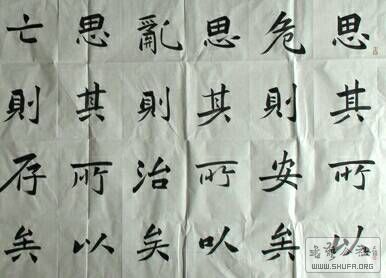 思其所以
危則安矣
思其所以
亂則治矣
思其所以
亡則存矣
WWW.SHUFA.ORG